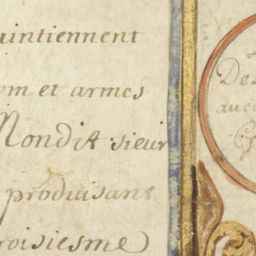 uintiennent
om et armes
Mondit sieur
produisant
roisiesme
De